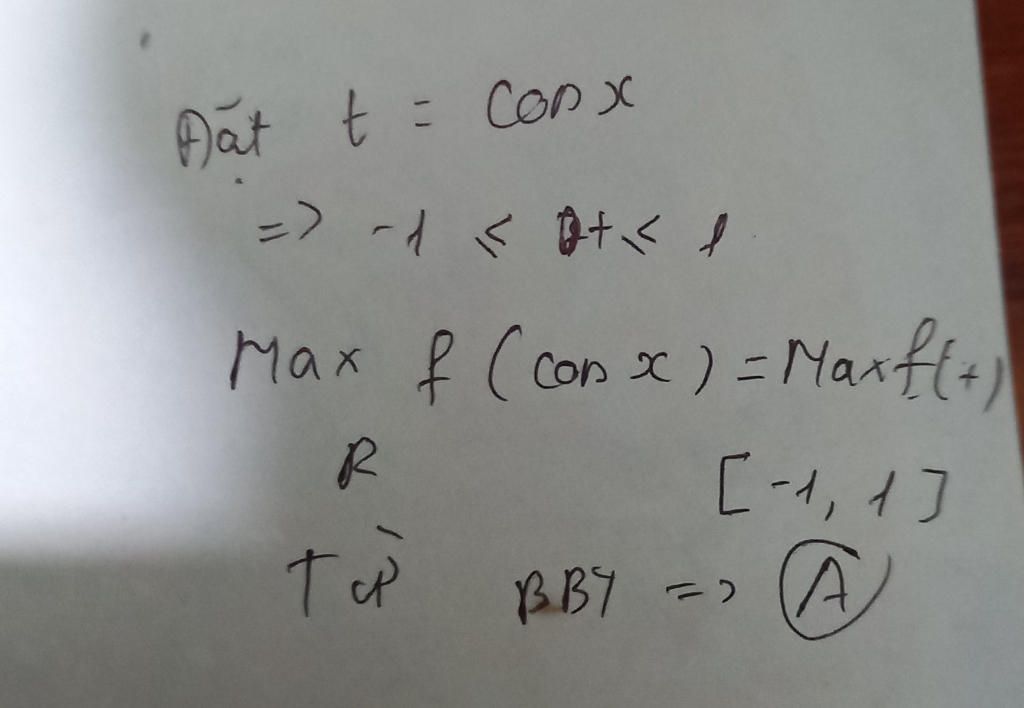 Đặt t = cos x
=> -1 ≤ t ≤ 1
Max f (cos x) = Max f(t)
R [-1, 1]
Từ BBT => A